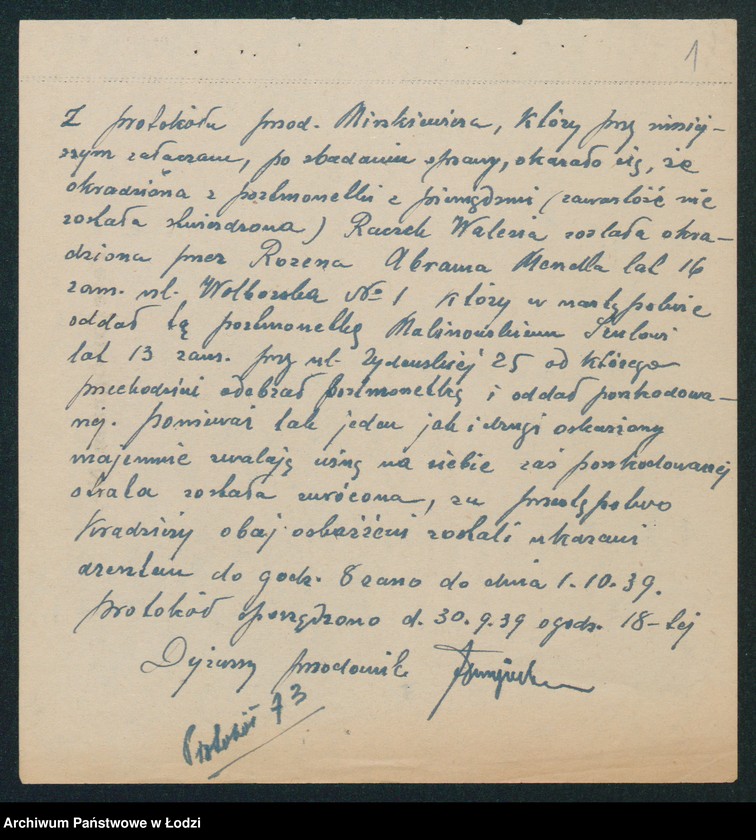 1
Z protokółu przod. Mirskiewicza, który przy niniej-
szym załączam, po zbadaniu sprawy, okazało się, że
okradziona z portmonetki z pieniędzmi (zawartość nie
została stwierdzona) Raczek Waleria została okra-
dziona przez Rozena Abrama Mendla lat 16
zam. ul. Wolborska № 1 który w następstwie
oddał tą portmonetkę Malinowskiemu Szulowi
lat 13 zam. przy ul. Żydowskiej 25 od którego
przechodzini odebrał portmonetkę i oddał poszkodowa-
nej. Ponieważ tak jeden jak i drugi oskarżony
wzajemnie zwalają winę na siebie zaś poszkodowanej
strata została zwrócona, za przestępstwo
kradzieży obaj oskarżeni zostali ukarani
aresztem do godz. 8 rano do dnia 1.10.39.
protokół sporządzono d. 30.9.39 o godz. 18-tej
Dyżurny przodownik
Protokół 73
Archiwum Państwowe w Łodzi